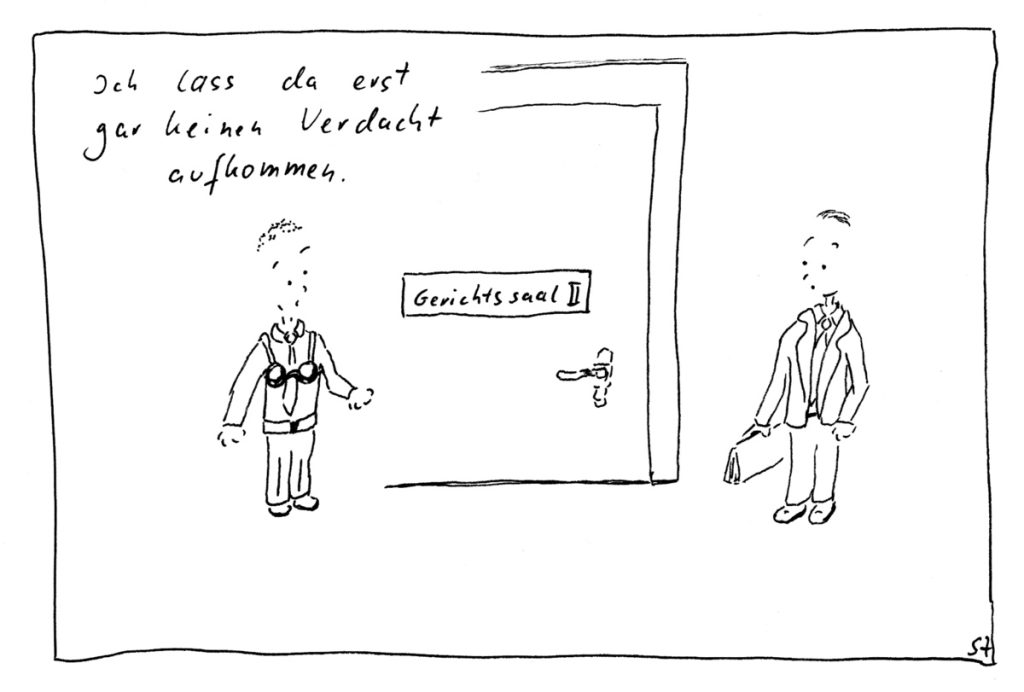 Ich lass da erst
gar keinen Verdacht
aufkommen.
Gerichtssaal II
St